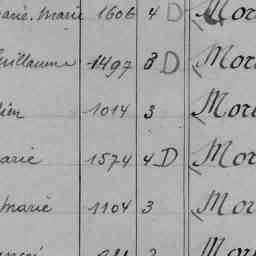 arie. Marie 1606 4 D Mor
uillaume 1497 3 D Mor
lien 1014 3 Mor
arie 1574 4 D Mor
marie 1104 3 Mor